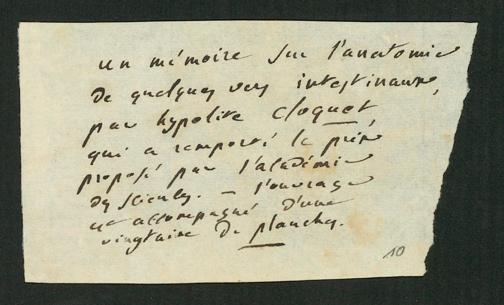 un mémoire sur l'anatomie
de quelques vers intestinaux,
par hypolite Cloquet
qui a remporté le prix
proposé par l'académie
des sciences. — l'ouvrage
est accompagné d'une
vingtaine de planches.
10